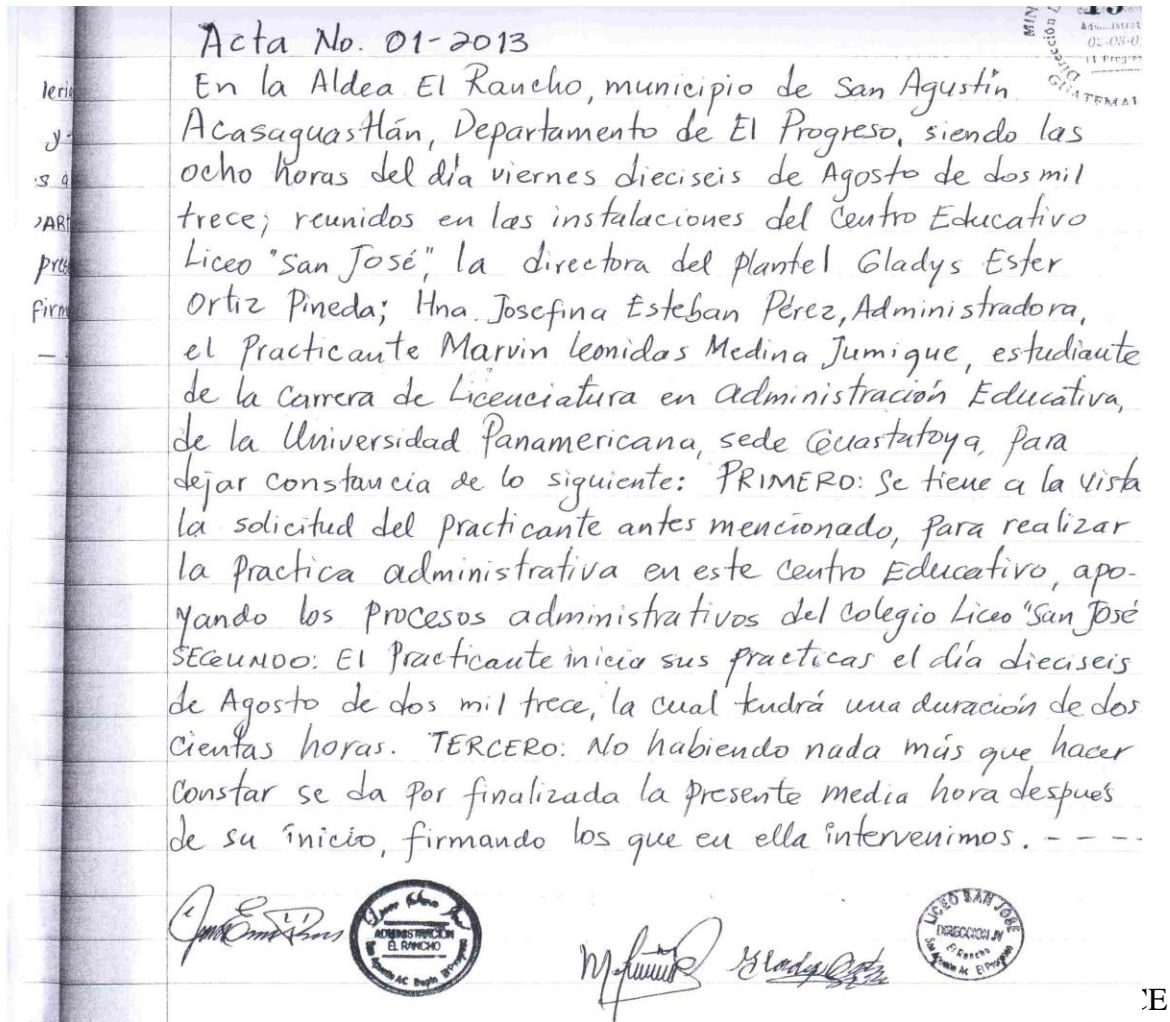 Acta No. 01-2013
En la Aldea El Rancho, municipio de San Agustín
Acasaguastlán, Departamento de El Progreso, siendo las
ocho horas del día viernes dieciseis de Agosto de dos mil
trece; reunidos en las instalaciones del Centro Educativo
Liceo "San José", la directora del plantel Gladys Ester
Ortiz Pineda; Hna. Josefina Esteban Pérez, Administradora,
el Practicante Marvin Leonidas Medina Jumique, estudiante
de la Carrera de Licenciatura en Administración Educativa,
de la Universidad Panamericana, sede Guastatoya, Para
dejar constancia de lo siguiente: PRIMERO: Se tiene a la vista
la solicitud del practicante antes mencionado, para realizar
la practica administrativa en este Centro Educativo, apo-
yando los procesos administrativos del Colegio Liceo "San José
SEGUNDO: El Practicante inicia sus practicas el día dieciseis
de Agosto de dos mil trece, la cual tendrá una duración de dos
cientas horas. TERCERO: No habiendo nada más que hacer
constar se da por finalizada la presente media hora después
de su inicio, firmando los que en ella intervenimos. - - - -
ADMINISTRACIÓN
EL RANCHO
LICEO SAN JOSÉ
DIRECCION JV
El Rancho
San Agustin AC El Progreso